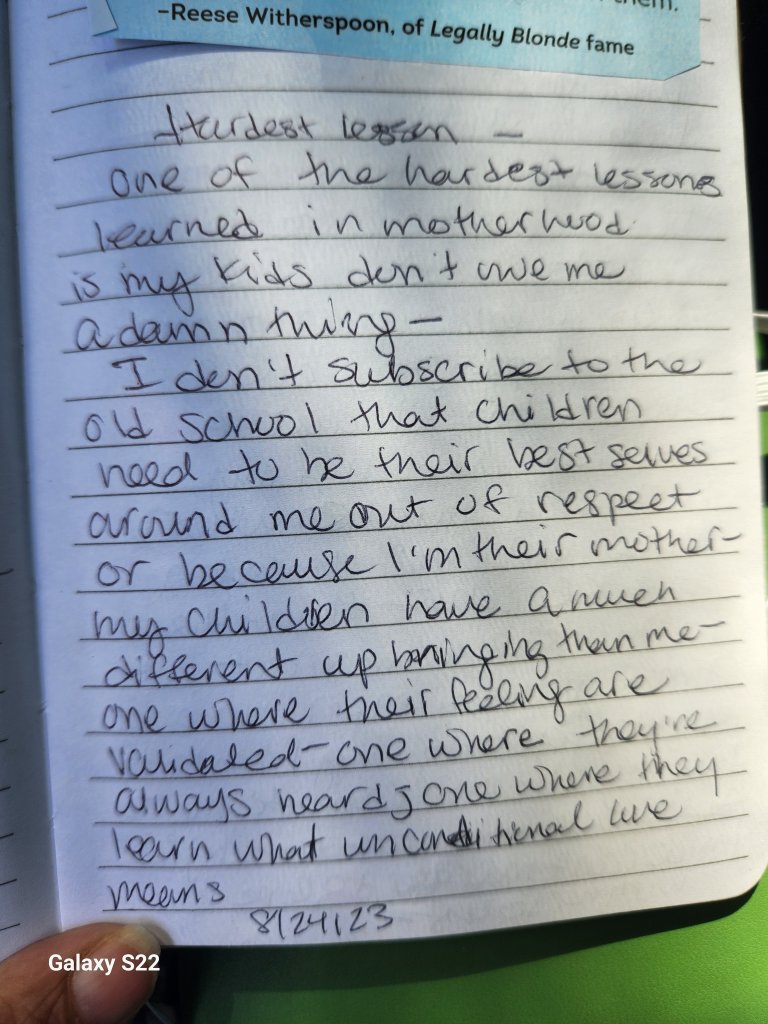 them.
–Reese Witherspoon, of Legally Blonde fame
Hardest lesson –
one of the hardest lessons
learned in motherhood
is my kids don't owe me
a damn thing –
I don't subscribe to the
old school that children
need to be their best selves
around me out of respect
or because I'm their mother –
my children have a much
different up bringing than me –
one where their feeling are
validated – one where they're
always heard & one where they
learn what unconditional love
means
8/24/23
Galaxy S22